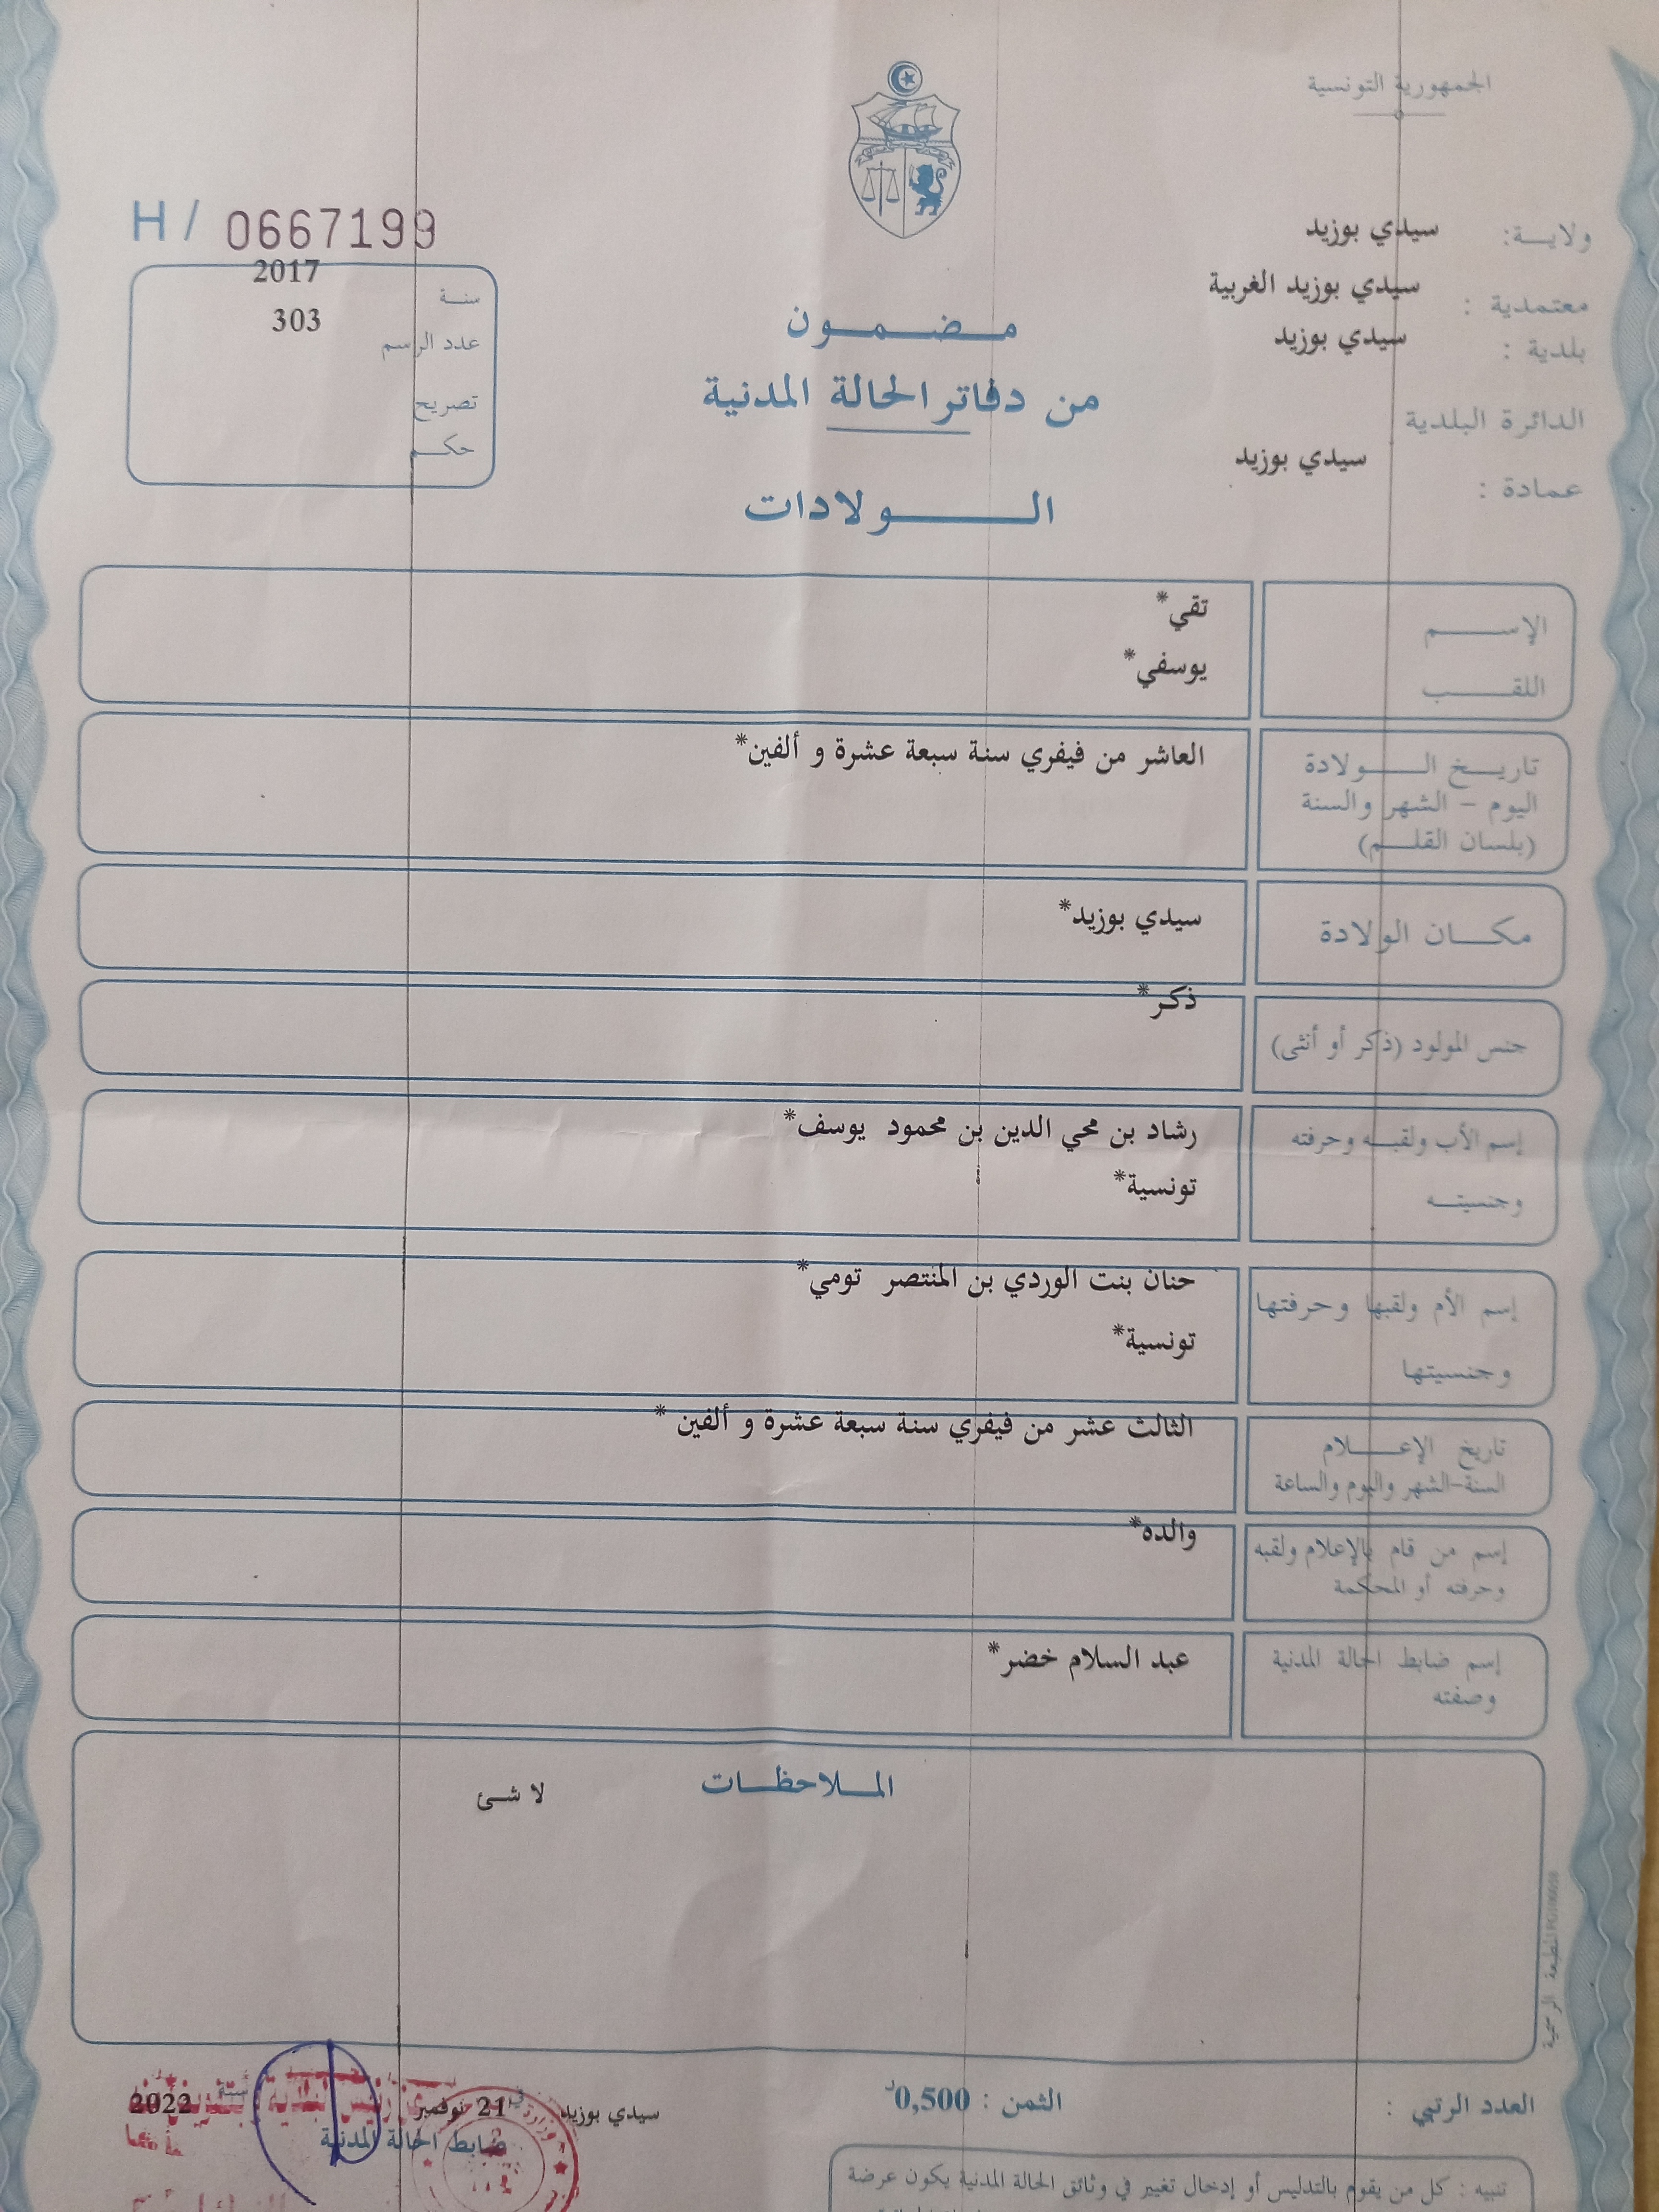 الجمهورية التونسية
ولاية: سيدي بوزيد
معتمدية : سيدي بوزيد الغربية
بلدية : سيدي بوزيد
الدائرة البلدية
عمادة : سيدي بوزيد
H / 0667199
سنة 2017
عدد الرسم 303
تصريح
حكم
مضمون
من دفاتر الحالة المدنية
الولادات
الإسم تقي*
اللقب يوسفي*
تاريخ الولادة العاشر من فيفري سنة سبعة عشرة و ألفين*
اليوم - الشهر والسنة
(بلسان القلم)
مكان الولادة سيدي بوزيد*
جنس المولود (ذكر أو أنثى) ذكر*
إسم الأب ولقبه وحرفته رشاد بن محي الدين بن محمود يوسف*
وجنسيته تونسية*
إسم الأم ولقبها وحرفتها حنان بنت الوردي بن المنتصر تومي*
وجنسيتها تونسية*
تاريخ الإعلام الثالث عشر من فيفري سنة سبعة عشرة و ألفين *
السنة-الشهر واليوم والساعة
إسم من قام بالإعلام ولقبه والده*
وحرفته أو المحكمة
إسم ضابط الحالة المدنية عبد السلام خضر*
وصفته
الملاحظات
لا شئ
المطبعة الرسمية
العدد الرتبي :
الثمن : 0,500د
سيدي بوزيد في 21 نوفمبر سنة 2022
ضابط الحالة المدنية
تنبيه : كل من يقوم بالتدليس أو إدخال تغيير في وثائق الحالة المدنية يكون عرضة